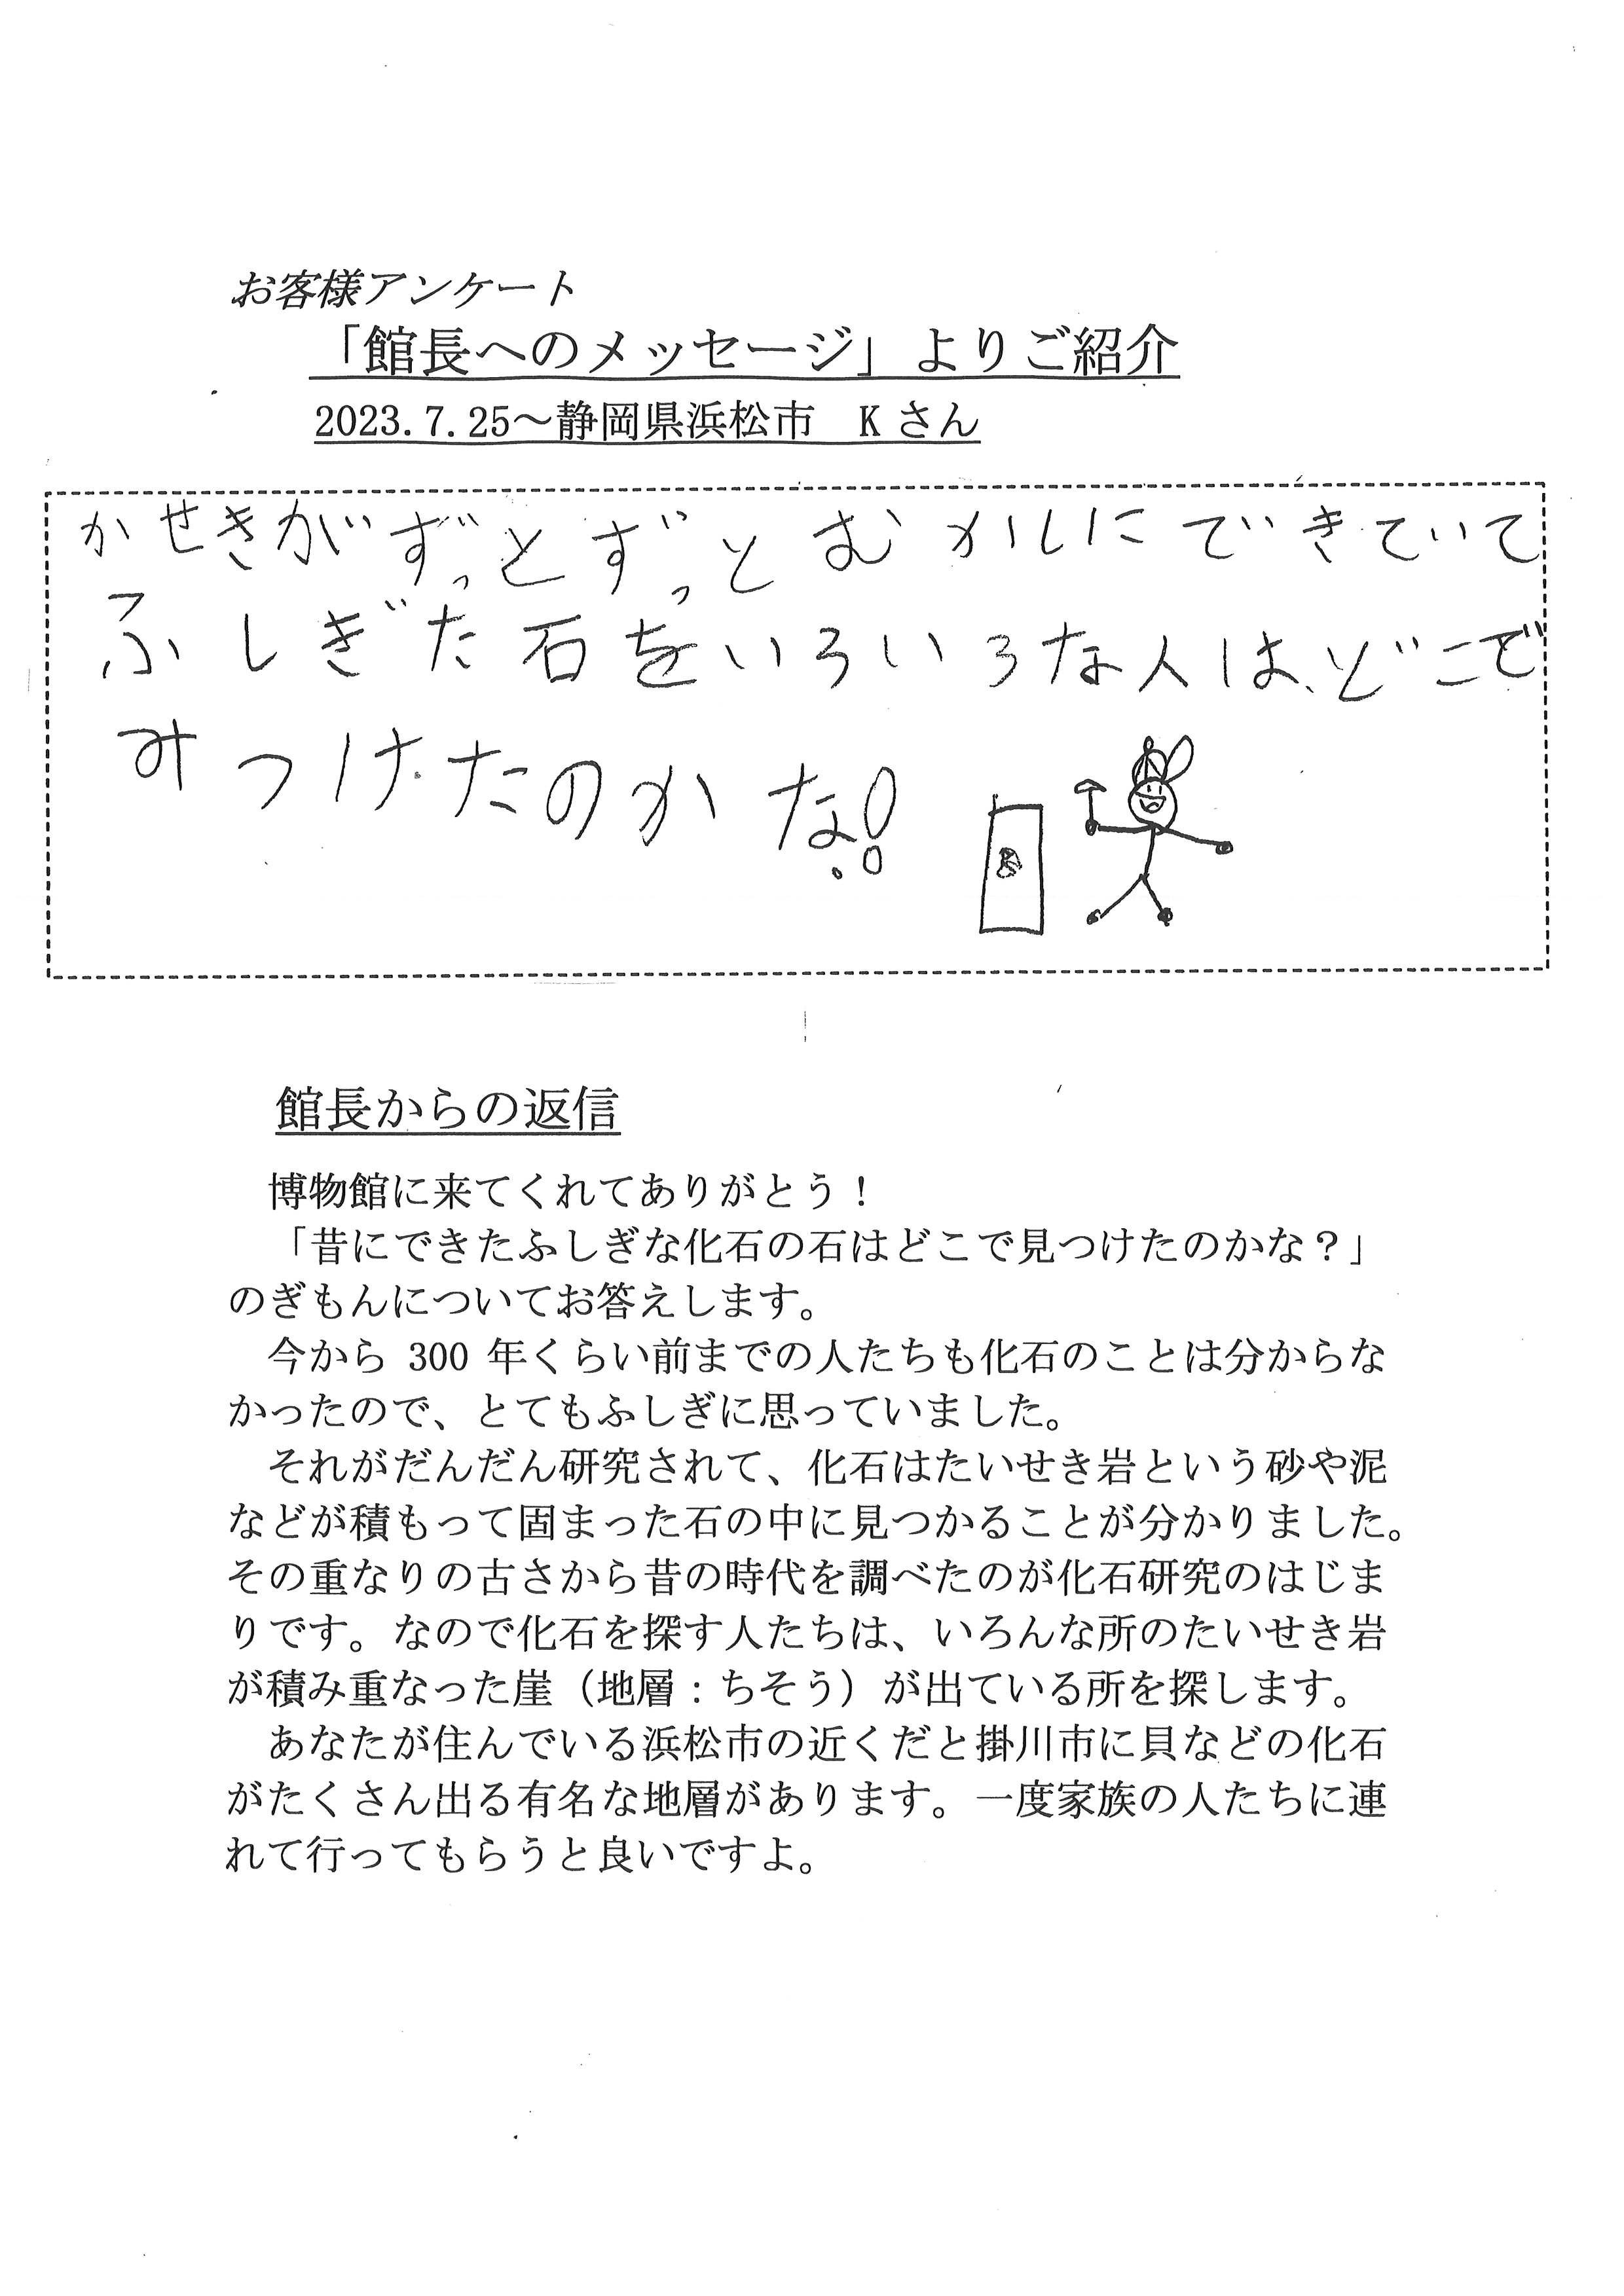 お客様アンケート
「館長へのメッセージ」よりご紹介
2023.7.25～静岡県浜松市　Kさん
かせきがずっとずっとむかしにできていて
ふしぎた石をいろいろな人は、どこで
みつけたのかな!
館長からの返信
博物館に来てくれてありがとう！
「昔にできたふしぎな化石の石はどこで見つけたのかな？」
のぎもんについてお答えします。
今から 300 年くらい前までの人たちも化石のことは分からな
かったので、とてもふしぎに思っていました。
それがだんだん研究されて、化石はたいせき岩という砂や泥
などが積もって固まった石の中に見つかることが分かりました。
その重なりの古さから昔の時代を調べたのが化石研究のはじま
りです。なので化石を探す人たちは、いろんな所のたいせき岩
が積み重なった崖（地層：ちそう）が出ている所を探します。
あなたが住んでいる浜松市の近くだと掛川市に貝などの化石
がたくさん出る有名な地層があります。一度家族の人たちに連
れて行ってもらうと良いですよ。